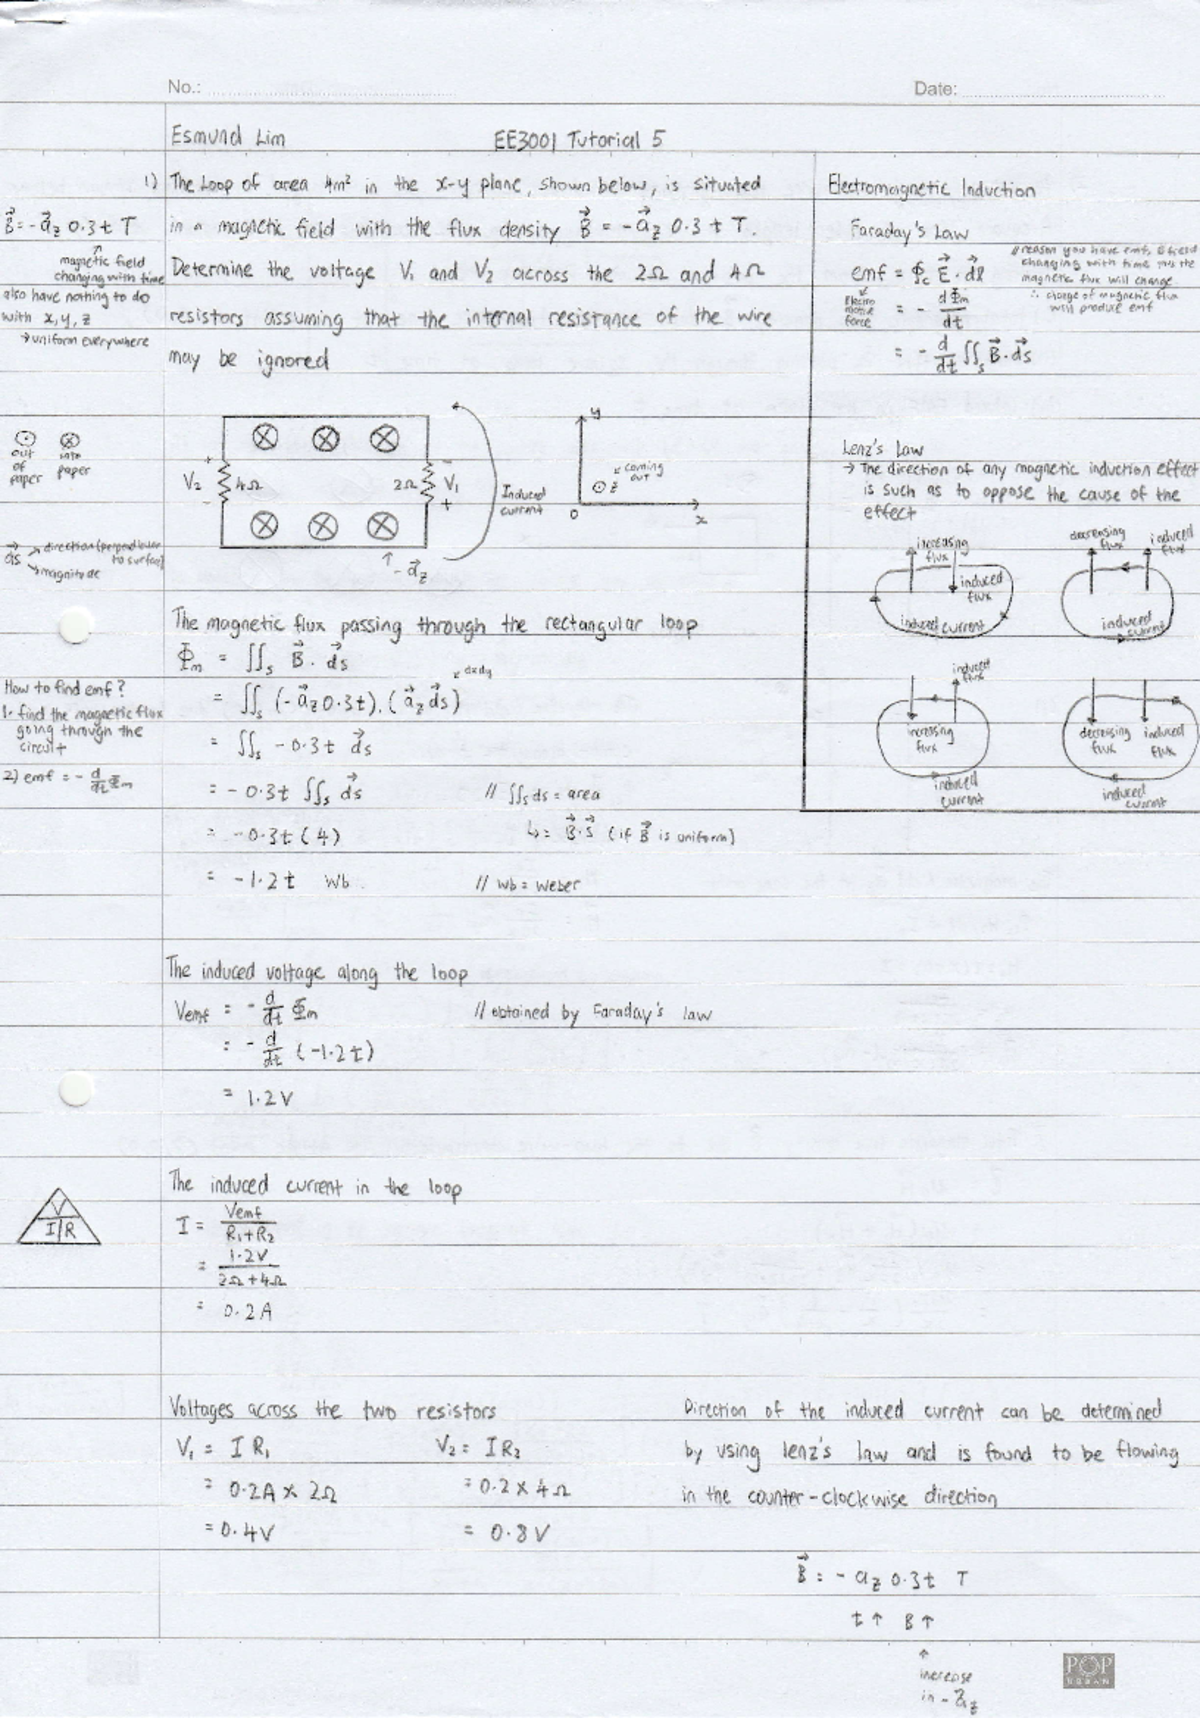 No.:
Date:
Esmund Lim
EE3001 Tutorial 5
1) The Loop of area 4m² in the x-y plane, shown below, is situated
in a magnetic field with the flux density B⃗ = -a⃗z 0.3 t T.
Determine the voltage V₁ and V₂ across the 2Ω and 4Ω
resistors assuming that the internal resistance of the wire
may be ignored
B⃗ = -a⃗z 0.3 t T
magnetic field
changing with time
also have nothing to do
with x, y, z
→ uniform everywhere
Electromagnetic Induction
Faraday's Law
emf = ∮c E⃗ · dl⃗
Electro
motive
force
= - dΦm/dt
= - d/dt ∬s B⃗ · ds⃗
// reason you have emf,
changing with time
magnetic flux will change
∴ change of magnetic flux
will produce emf
Lenz's Law
→ The direction of any magnetic induction effect
is such as to oppose the cause of the
effect
increasing
flux
induced
flux
induced current
decreasing
flux
induced
flux
induced
current
induced
flux
increasing
flux
induced
current
decreasing
flux
induced
flux
induced
current
out
of
paper
into
paper
ds⃗
direction (perpendicular
to surface)
magnitude
+
V₂
-
4Ω
2Ω
-
V₁
+
Induced
current
↑ -a⃗z
y
coming
out
z
0
x
The magnetic flux passing through the rectangular loop
Φm = ∬s B⃗ · ds⃗
dxdy
= ∬s (-a⃗z 0.3t) . (a⃗z ds⃗)
= ∬s -0.3t ds⃗
= -0.3t ∬s ds⃗
// ∬s ds = area
= -0.3t (4)
↳ = B⃗·S⃗ (if B⃗ is uniform)
= -1.2t Wb.
// Wb = weber
How to find emf?
1. find the magnetic flux
going through the
circuit
2) emf = - d/dt Φm
The induced voltage along the loop
Vemf = - d/dt Φm
// obtained by Faraday's law
= - d/dt (-1.2t)
= 1.2V
The induced current in the loop
V
I R
I = Vemf / R₁+R₂
= 1.2V / 2Ω+4Ω
= 0.2A
Voltages across the two resistors
V₁ = I R₁
V₂ = I R₂
= 0.2A × 2Ω
= 0.2 × 4Ω
= 0.4V
= 0.8V
Direction of the induced current can be determined
by using lenz's law and is found to be flowing
in the counter-clockwise direction
B⃗ = -az 0.3t T
t↑ B↑
↑
increase
in -a⃗z
POP